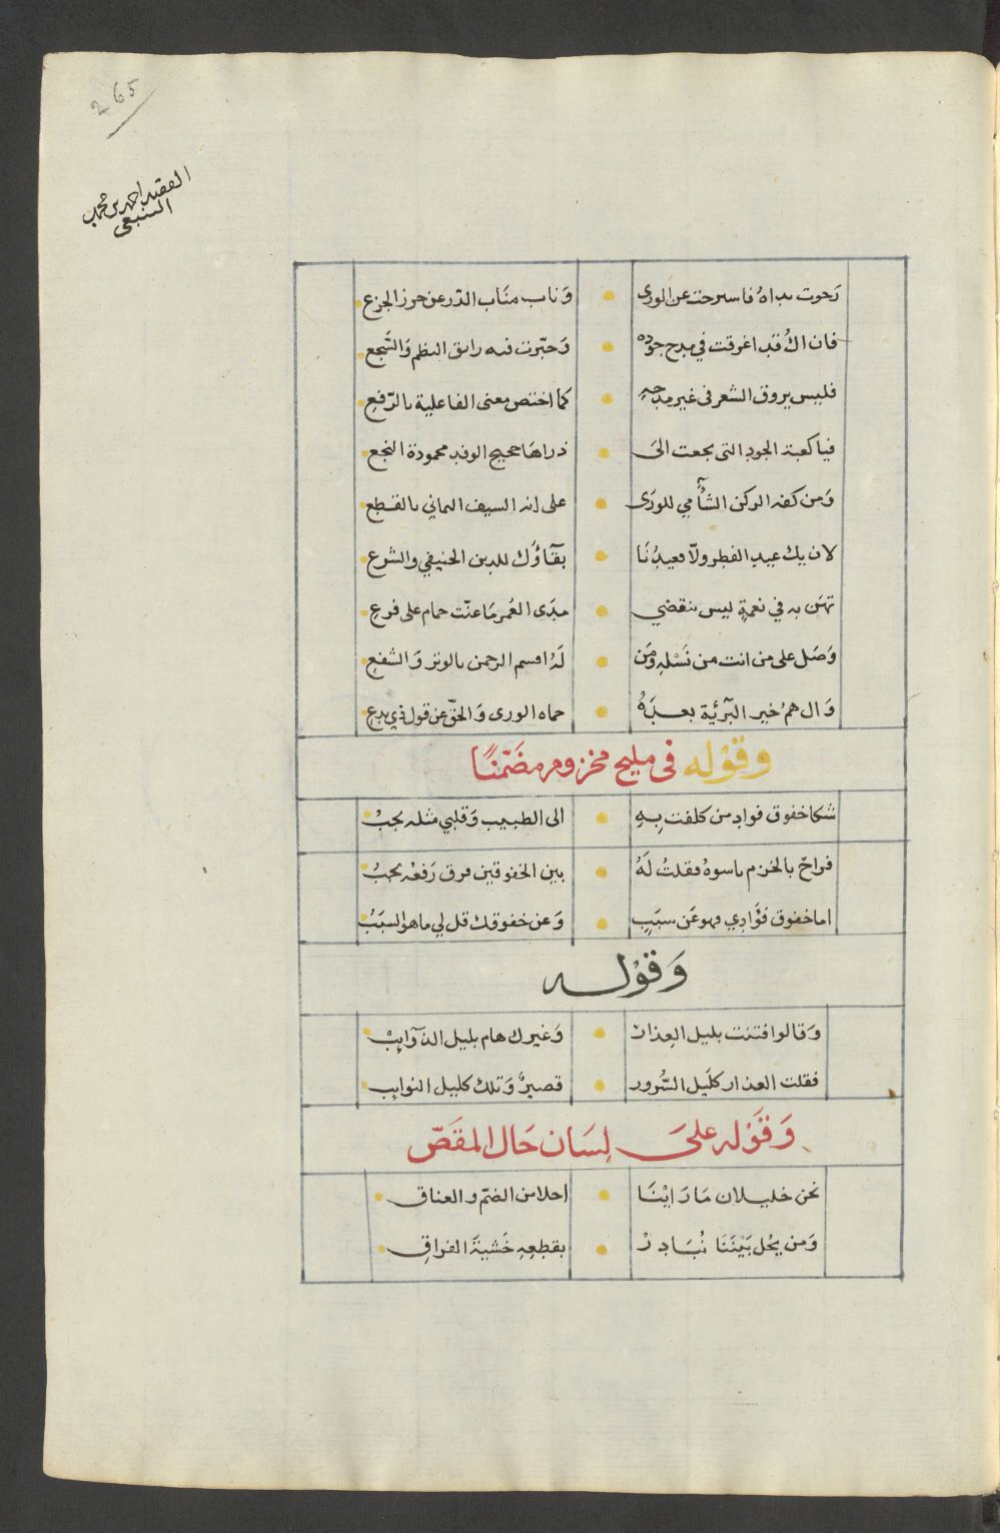 265
الفقيه احمد بن محمد
السنبعي
رَحوت يداهُ فاستر حت عن الورى وَناب منَاب الدّر عن حوز الجزع
فان اكُ قد اغرقت في مدح جوده وَحبّرت فيه رايق النظم وَالسَّجع
فليس يروق الشعر في غير مدحهِ كمَا اختص معنى الفاعلية بالرّفعِ
فيا كعبة الجود التى نجعت الىَ ذراهَا حجيج الوفد محمودة النجع
وَمن كفه الركن الشآمي للورَى على انه السيف اليماني بالقطع
لان يك عيد الفطر ولّا فعيدُنَا بقآؤك للدين الحنيفي والشرع
تهنَ به في نعمةٍ ليس تنقضي مدَى العُمر مَا غنّت حمام على فرع
وَصَل على من انت من نَسْلهِ وَمَن لَهُ اقسم الرحمن بالوتر وَالشفع
وَال همُ خير البَرئية بعدَهُ حماه الورى وَالحق عن قول ذي بدع
وقوْله فى مليح مخزوم مضَمّنًا
شكا خفوق فوادٍ من كلفت بِهِ الى الطبيب وَقلبي مثله يجبْ
فراحَ بالخزم ياسوهُ فقلتُ لَهُ بين الخفوقين فرق رَفعْه يجبُ
اما خفوق فؤادِي فهو عَن سبَبٍ وَعن خفوقك قل لي ما هو السبَبُ
وَقوْله
وَقالوا افتنت بليل العِذار وَغيرك هام بليل الذوَآيبْ
فقلت العذار كلَيل السُّرور قصيرٌ وَتلك كليل النوايب
وَقَوْله علىَ لِسَان حَال المقَصّ
نحن خليلان مَا رَايْنَا احلا من الضمّ والعناق
وَمن يحُل بَيْنَنَا نُبَادِرْ بقطعِهِ خَشْيَةَ الفراقِ